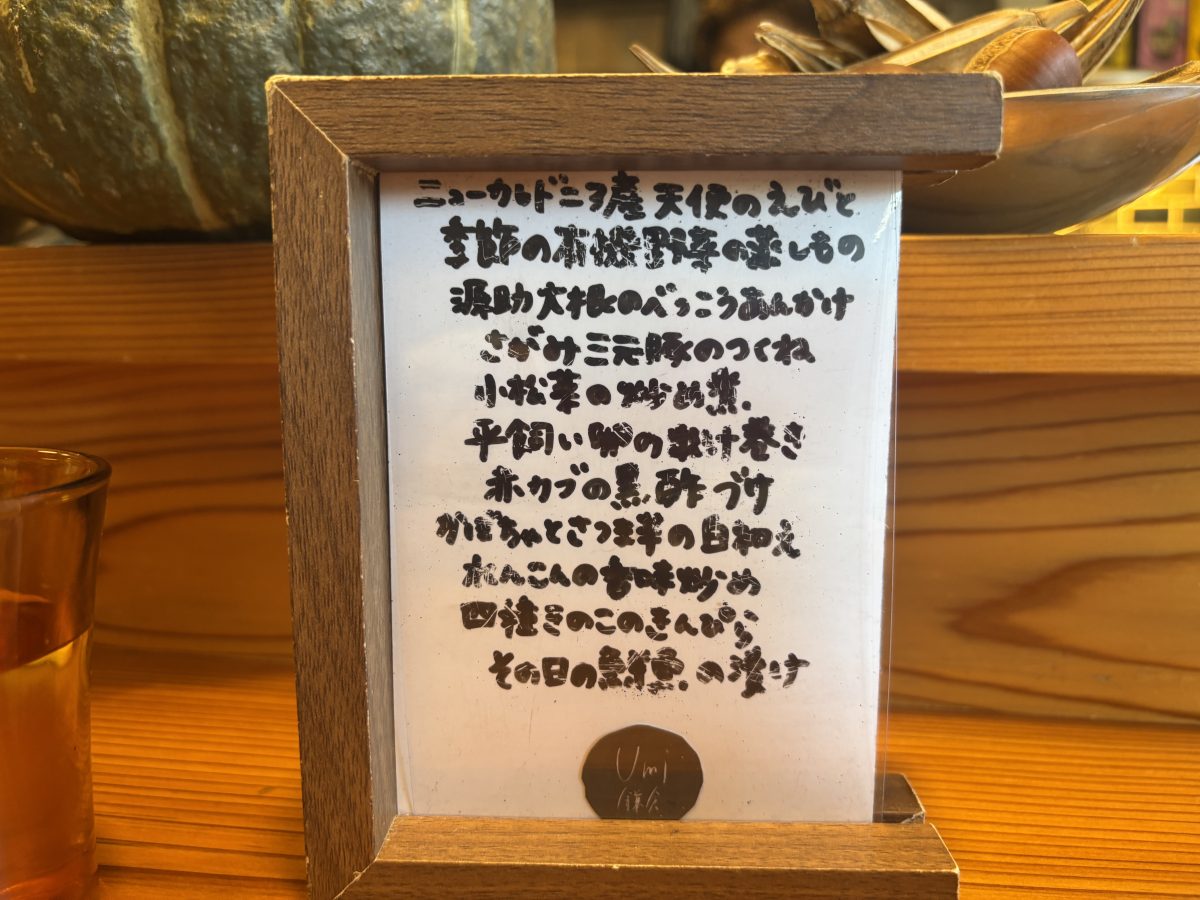 ニューカレドニア産天使のえびと
季節の有機野菜の蒸しもの
源助大根のべっこうあんかけ
さがみ三元豚のつくね
小松菜の炒め煮
平飼い卵の出汁巻き
赤カブの黒酢づけ
かぼちゃとさつま芋の白和え
れんこんの香味炒め
四種きのこのきんぴら
その日の鮮魚の漬け
Umi
鎌倉